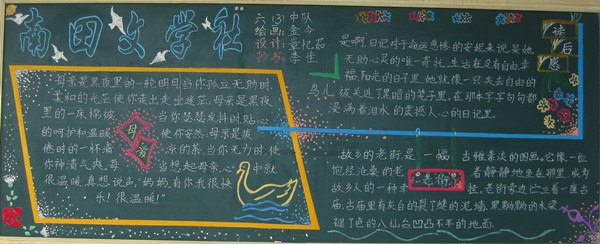 南田文学社
六(3)中队
绘画：金今
设计：章忆茹
抄写：李佳
读后感
是啊，日记对于命运悲惨的安妮来说是她
无助心灵的唯一寄托，生活在没有自由幸
福阳光的日子里，她就像一只失去自由的
鸟儿被关进了黑暗的笼子里，在那字字句句都
浸满着泪水的震撼人心的日记里。
母亲
母亲是黑夜里的一轮明月，当你孤立无助时，
柔和的光芒使你走出走出迷茫。母亲是寒夜
里的一床棉被，当你瑟瑟发抖时，贴心
的呵护和温暖使你安然。母亲是疲
倦时的一杯清凉的茶，当你无力时，使
你神清气爽。每当想起母亲，心中就
很温暖，真想说声，“妈妈，有你我很快
乐！很温暖！”
老街
故乡的老街，是一幅古雅素淡的图画。它像一位
饱经沧桑的老者静静地坐在那里，成为
故乡人的一种牵挂。老街旁边伫立着一座古
庙，古庙里有灰白的裂了缝的泥墙，黑黝黝的木梁，
褪了色的八仙台凹凸不平的地面。